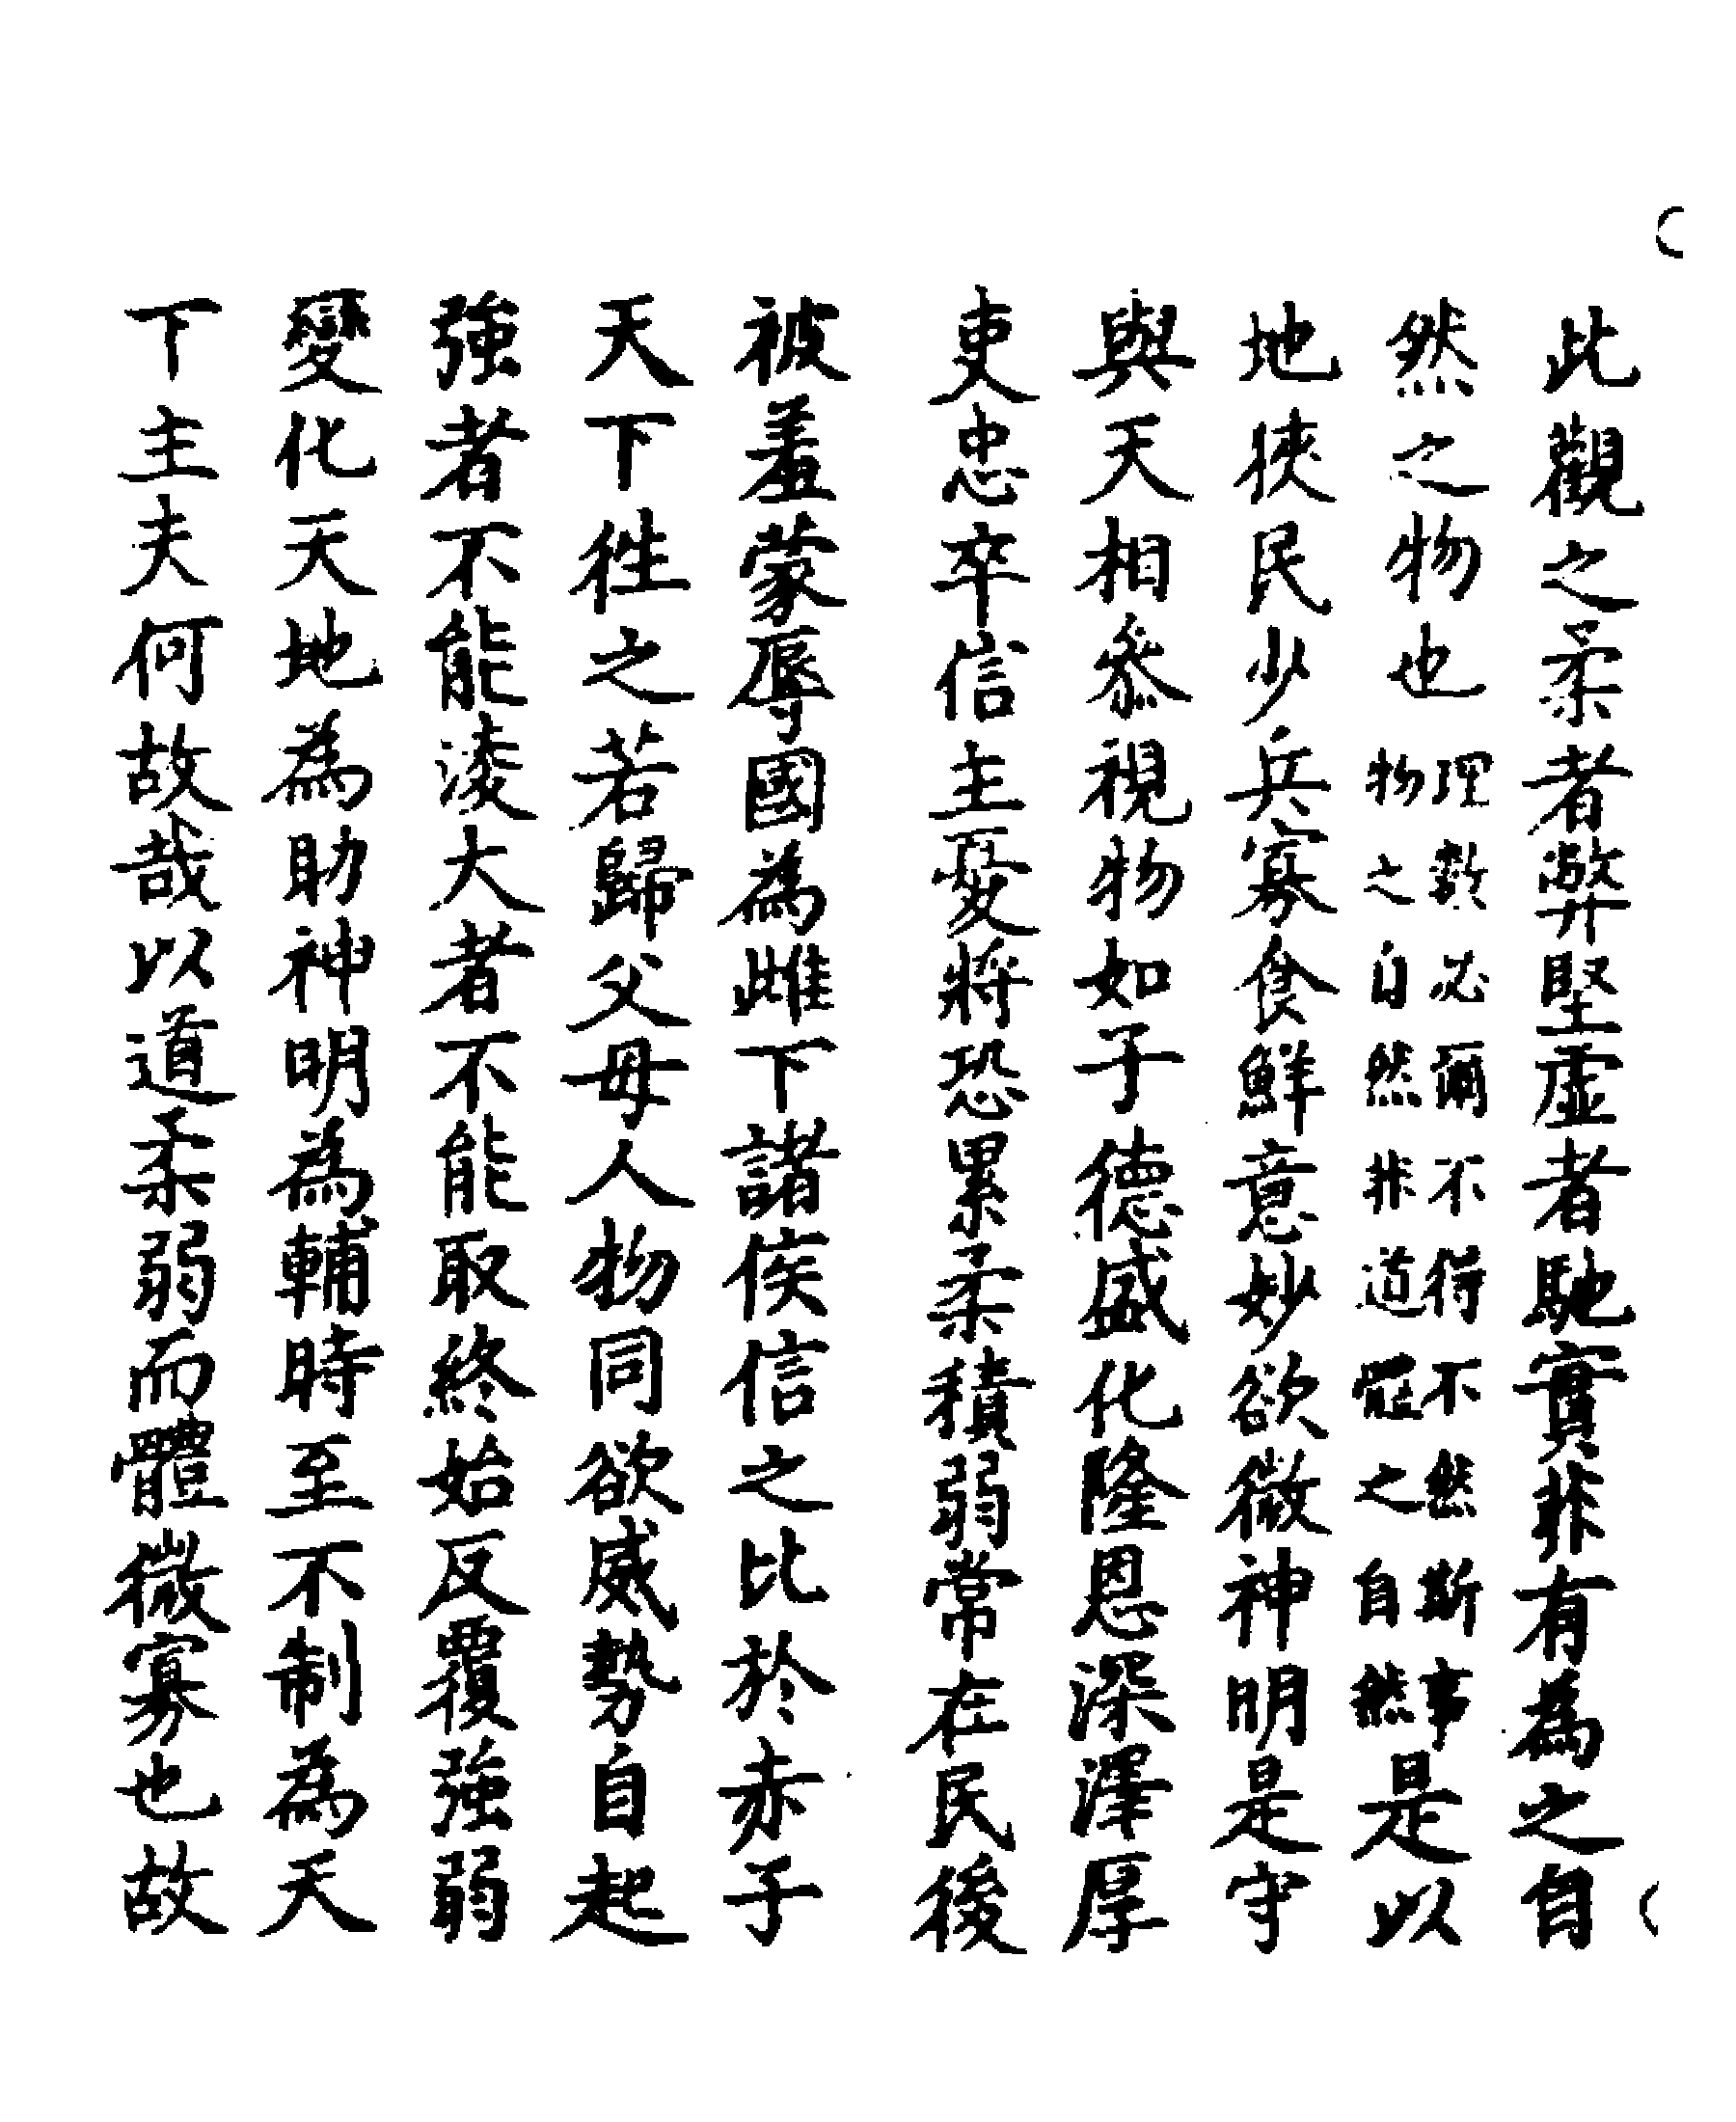 此觀之柔者弊堅虛者馳實非有為之自
然之物也理數必爾不得不然斯事物之自然非道能之自然是以
地狹民少兵寡食鮮意妙欲微神明是守
與天相叅視物如子德盛化隆恩深澤厚
吏忠卒信主憂將恐累柔積弱常在民後
被羞蒙辱國為雌下諸侯信之比於赤子
天下徃之若歸父母人物同欲威勢自起
強者不能淩大者不能取終始反覆強弱
變化天地為助神明為輔時至不制為天
下主夫何故哉以道柔弱而體微寡也故